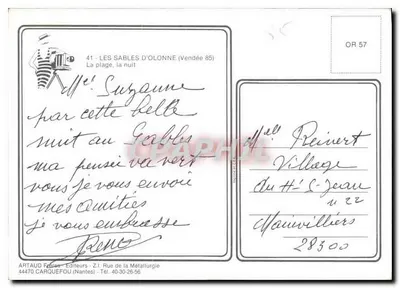 41 - LES SABLES D'OLONNE (Vendée 85)
La plage, la nuit
OR 57
Suzanne
par cette belle
nuit au Sables
ma pensée va vert
vous je vous envoi
mes amitiés
je vous embrasse
René
Melle Reinert
Village
du Ht S-Jean
n 22
Mainvilliers
28300
ARTAUD Frères - Editeurs - Z.I. Rue de la Métallurgie
44470 CARQUEFOU (Nantes) - Tél. 40-30-26-56